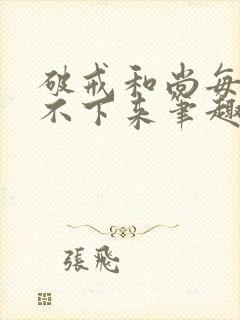 破戒和尚每
不下来笔趣
張飛